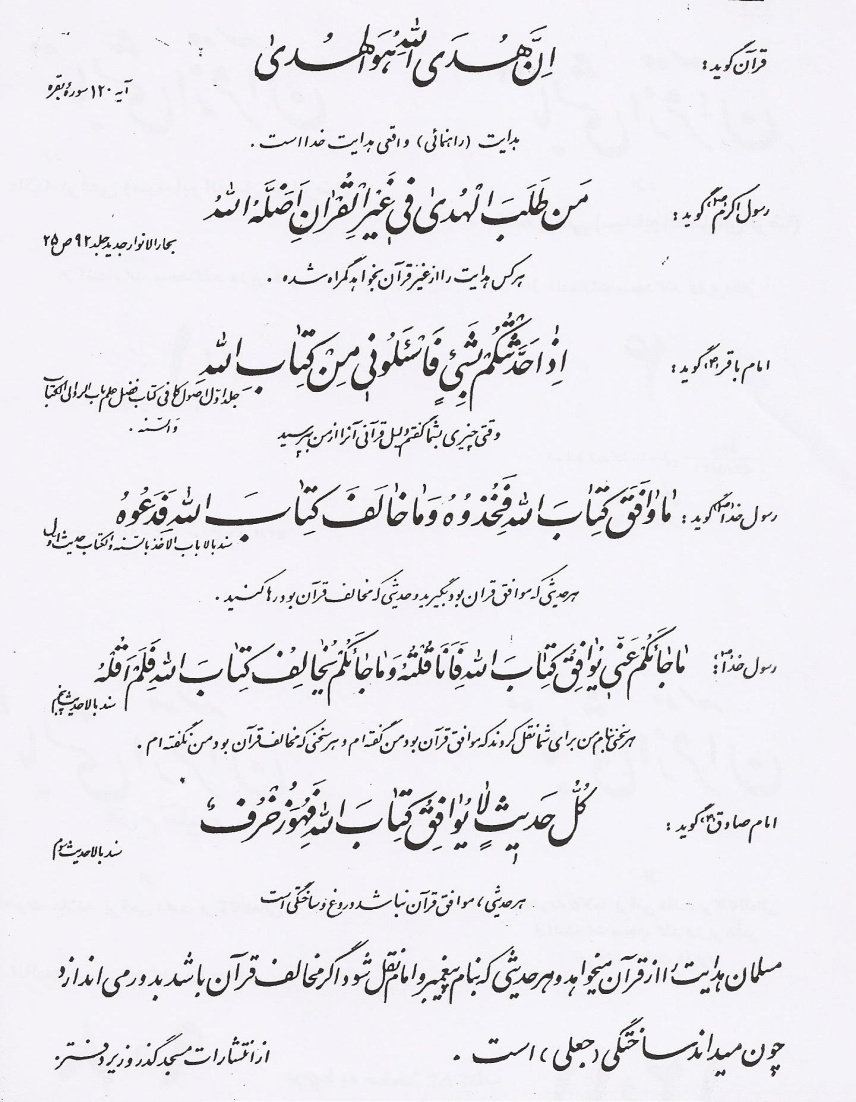 قرآن گوید: اِنَّ هُدَی اللهِ هُوَ الهُدیٰ
آیه ۱۲۰ سورهٔ بقره
هدایت (راهنمائی) واقعی هدایت خدا است .
رسول اکرم (ص) گوید: مَن طَلَبَ الْهُدیٰ فی غَیرِ الْقُرْانِ اَضَلَّهُ اللهُ
بحار الانوار جدید جلد ۹۲ ص ۲۵
هر کس هدایت را از غیر قرآن بخواهد گمراه شده .
امام باقر (ع) گوید: اِذٰا حَدَّثْتُکُمْ بِشَیْئٍ فَاسْئَلُونی مِنْ کِتٰابِ اللهِ
جلد اوّل اصول کافی کتاب فضل علم باب الرد الی الکتاب
و السنه .
وقتی چیزی بشما گفتم دلیل قرآنی آنرا از من بپرسید
رسول خدا (ص) گوید: مٰا وٰافَقَ کِتٰابَ اللهِ فَخُذُوهُ وَ مٰا خٰالَفَ کِتٰابَ اللهِ فَدَعُوهُ
سند بالا باب الاخذ بالسنه و الکتاب حدیث اول
هر حدیثی که موافق قرآن بود بگیرید و حدیثی که مخالف قرآن بود رها کنید .
رسول خدا (ص): مٰا جٰائَکُمْ عَنّی یُوٰافِقُ کِتٰابَ اللهِ فَاَنَا قُلْتُهُ وَ مٰا جٰائَکُمْ یُخٰالِفُ کِتٰابَ اللهِ فَلَمْ اَقُلْهُ
سند بالا حدیث پنجم
هر سخنی بنام من برای شما نقل کردند که موافق قرآن بود من گفته ام و هر سخنی که مخالف قرآن بود من نگفته ام .
امام صادق (ع) گوید: کُلُّ حَدیثٍ لٰا یُوٰافِقُ کِتٰابَ اللهِ فَهُوَ زُخْرُفٌ
سند بالا حدیث سوم
هر حدیثی، موافق قرآن نباشد دروغ و ساختگی است
مسلمان هدایت را از قرآن میخواهد و هر حدیثی که بنام پیغمبر و امام نقل شود اگر مخالف قرآن باشد بدور می اندازد
چون میداند ساختگی (جعلی) است . از انتشارات مسجد گذر وزیر دفتر